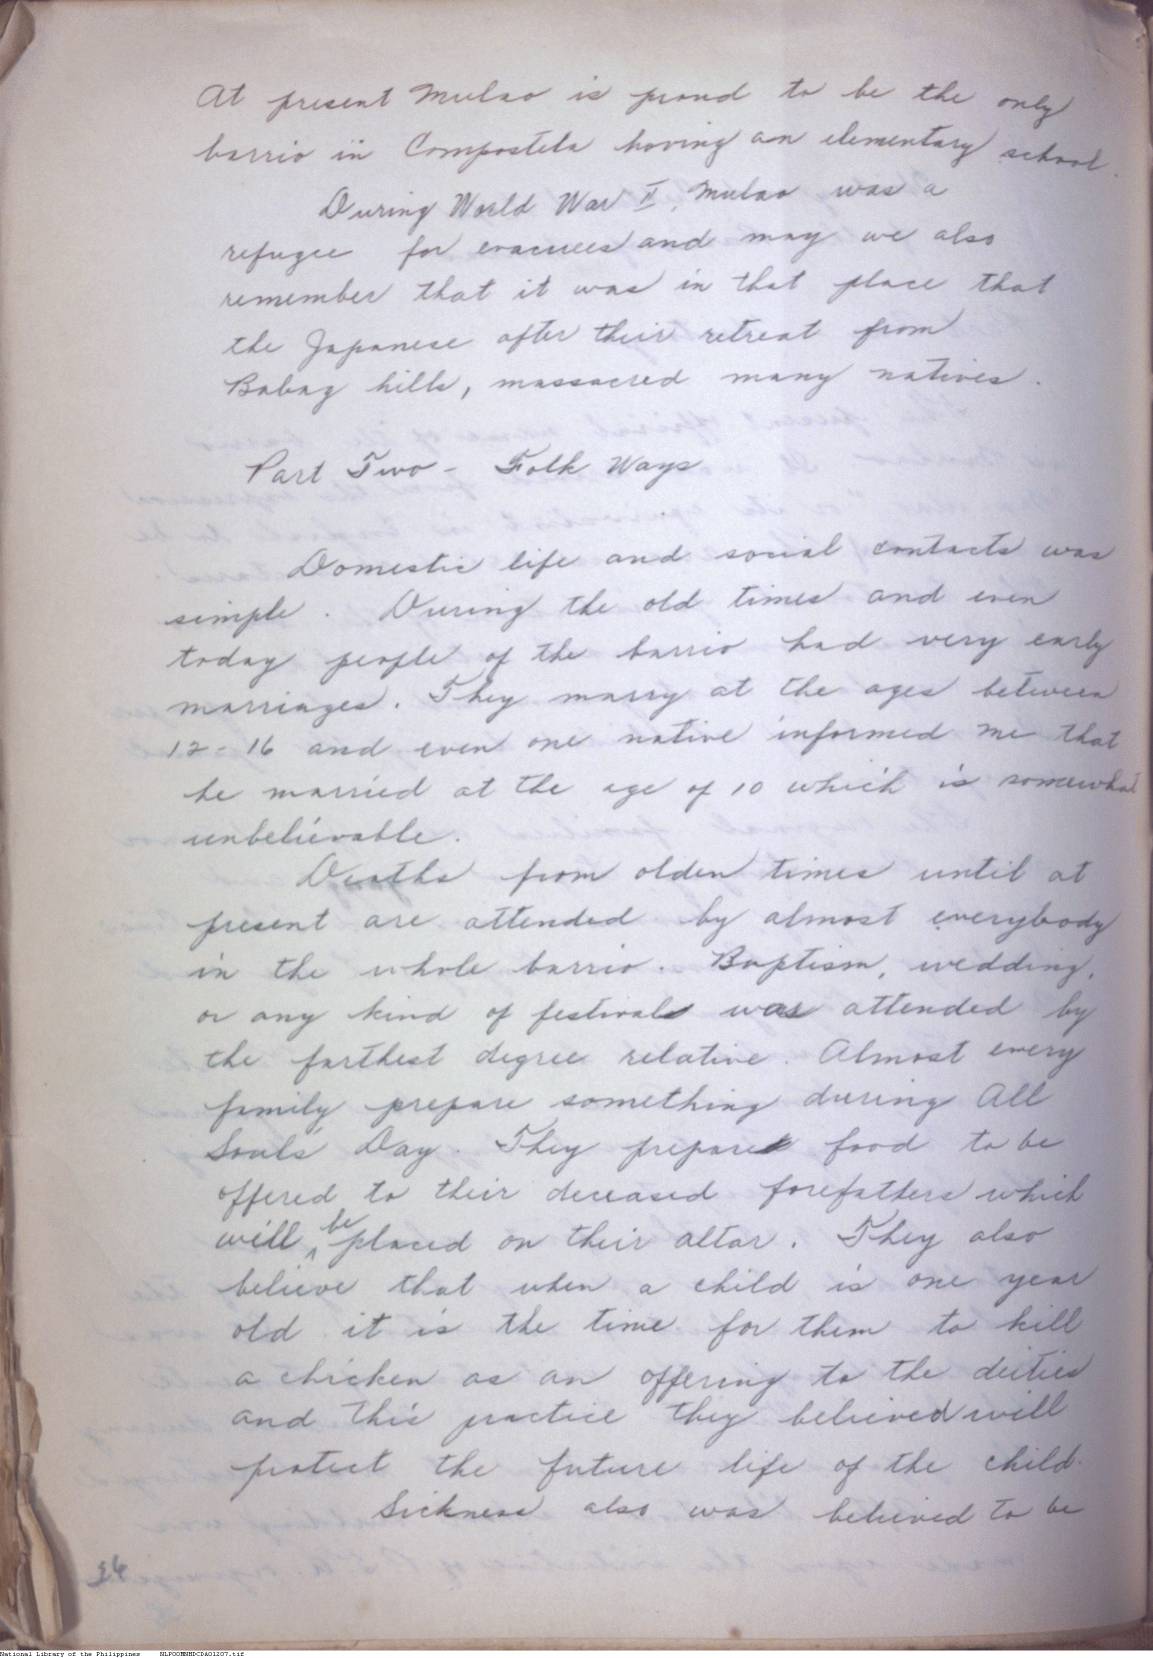 At present Mulao is proud to be the only
barrio in Compostela having an elementary school.
During World War II, Mulao was a
refugee for evacuees and may we also
remember that it was in that place that
the Japanese after their retreat from
Babag hills, massacred many natives.
Part Two - Folk Ways
Domestic life and social contacts was
simple. During the old times and even
today people of the barrio had very early
marriages. They marry at the ages between
12-16 and even one native informed me that
he married at the age of 10 which is somewhat
unbelievable.
Deaths from olden times until at
present are attended by almost everybody
in the whole barrio. Baptism, wedding,
or any kind of festivals was attended by
the farthest degree relative. Almost every
family prepare something during All
Souls Day. They prepare food to be
offered to their deceased forefathers which
will be placed on their altar. They also
believe that when a child is one year
old it is the time for them to kill
a chicken as an offering to the deities
and this practice they believed will
protect the future life of the child.
Sickness also was believed to be
36
National Library of the Philippines NLPOOMNHDCDA01207.tif